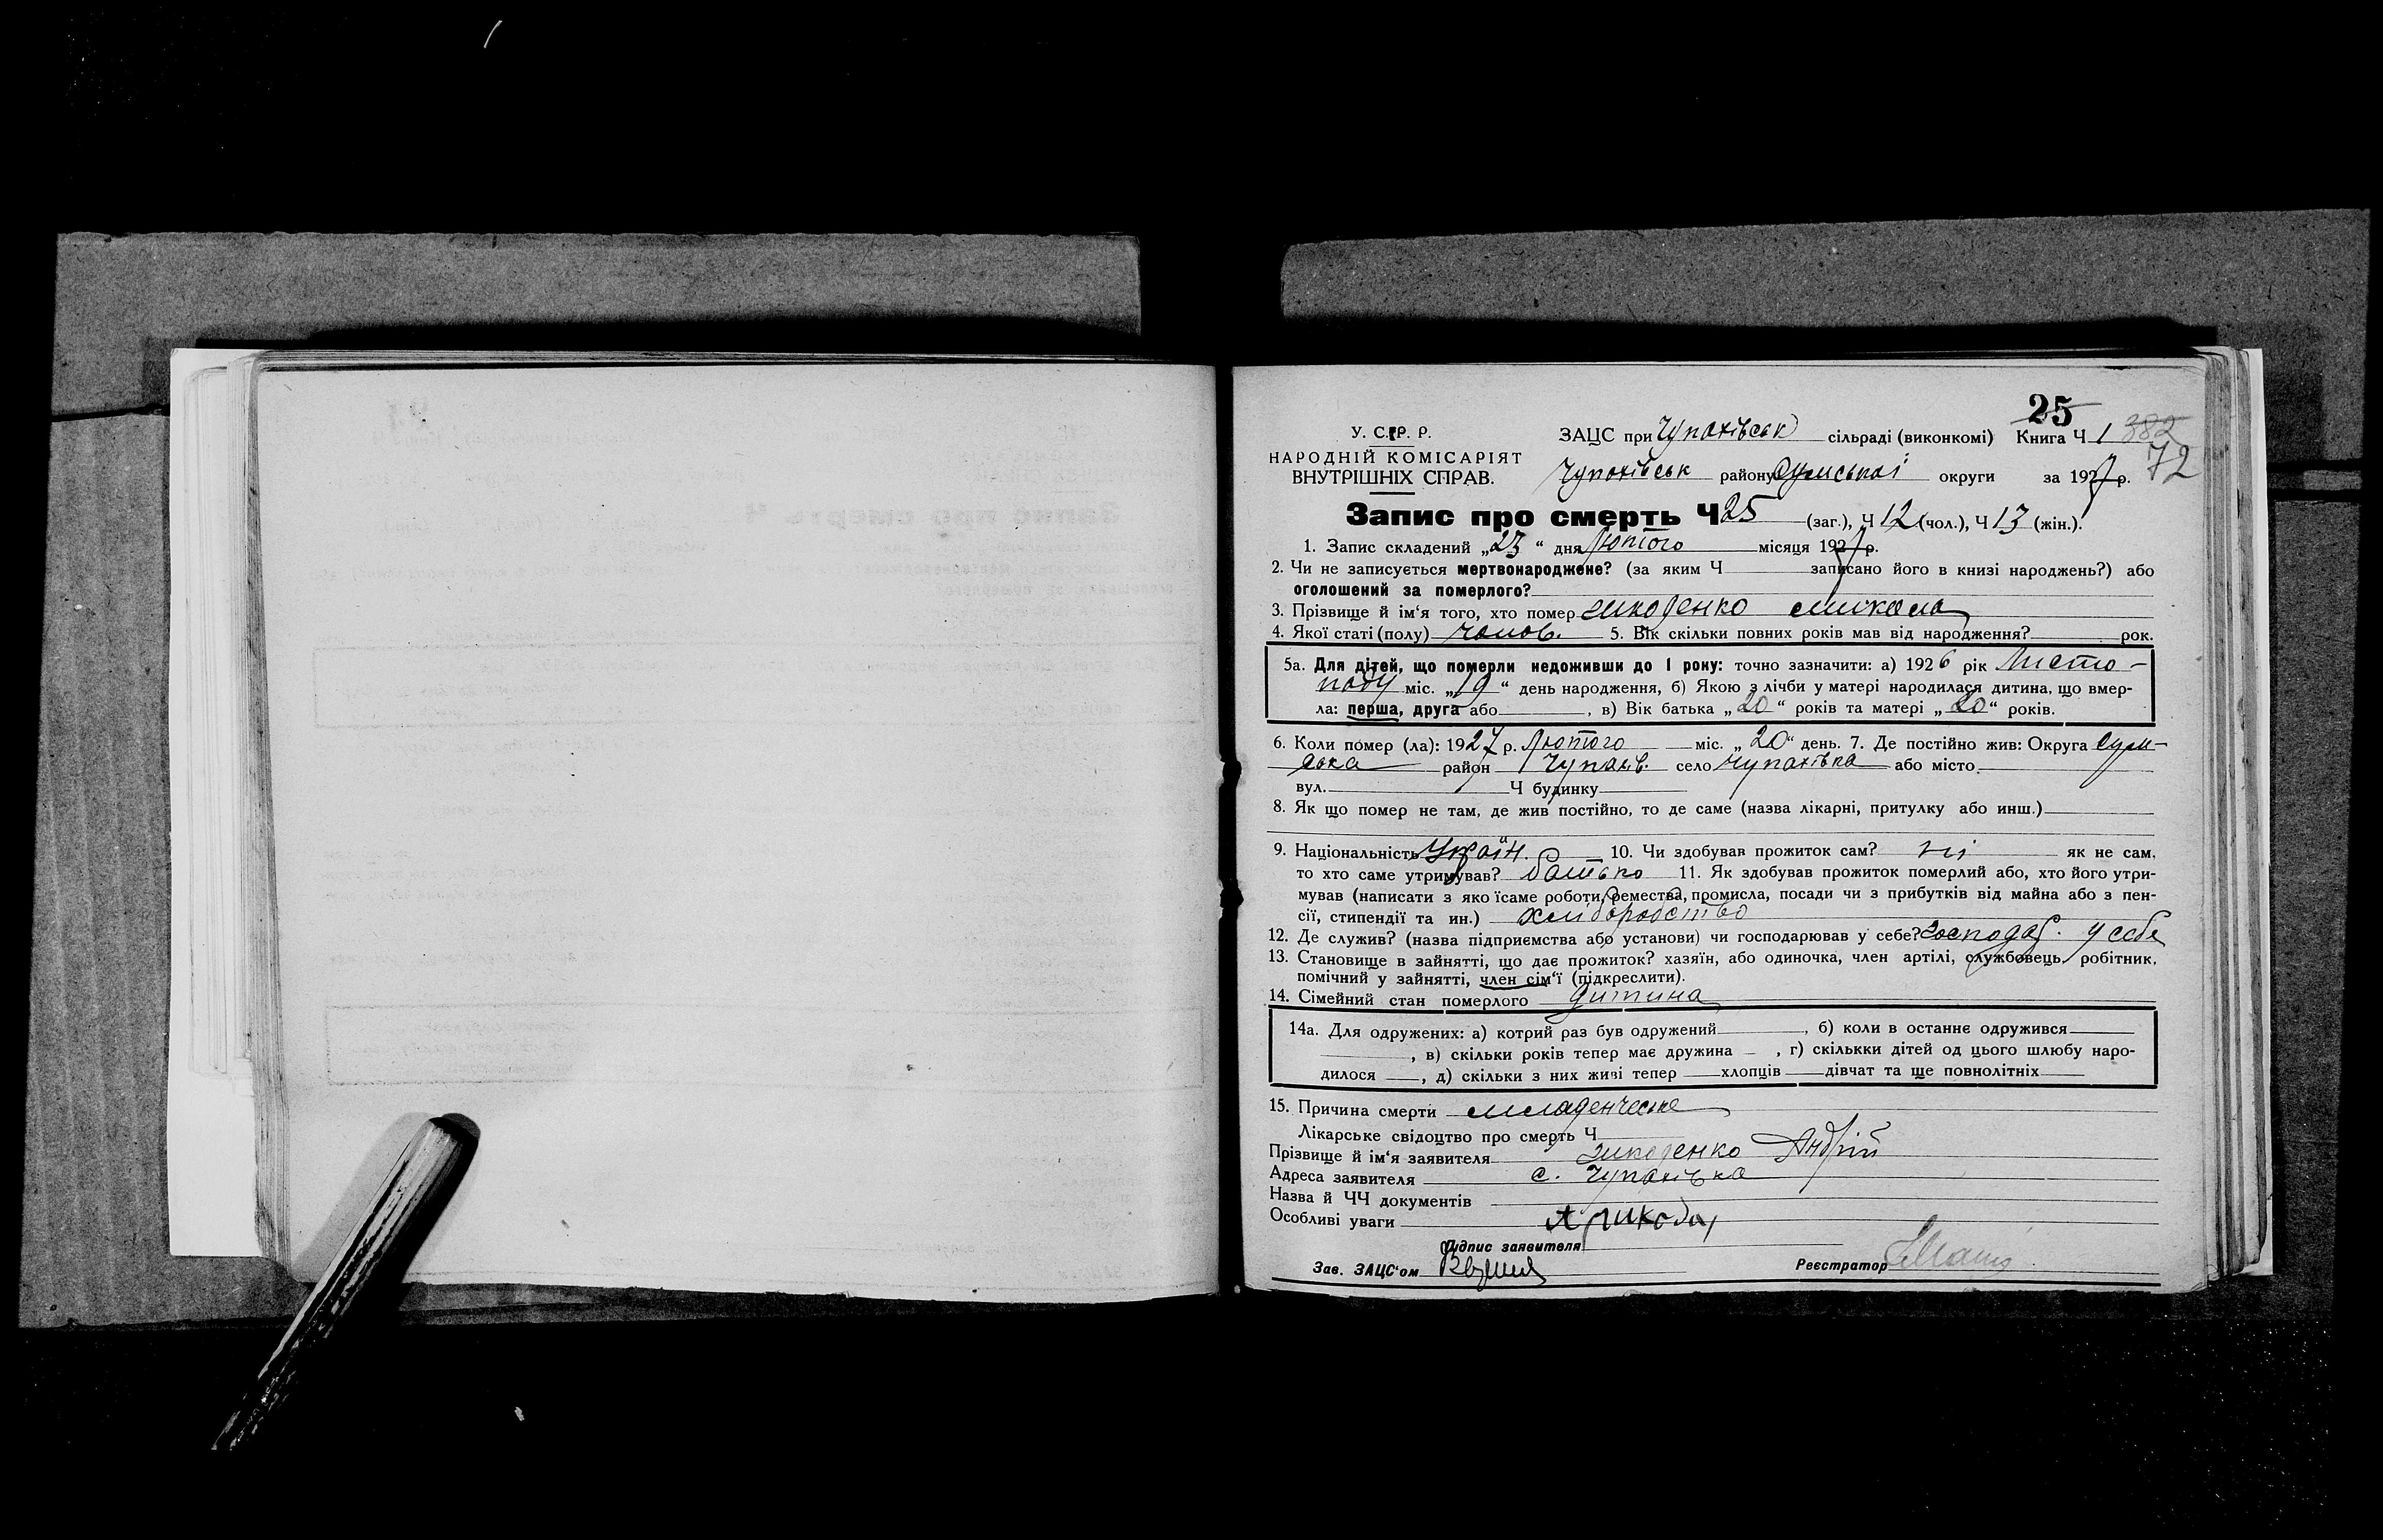 25
У. С. Р. Р.
ЗАЦС при Чупахівськ сільраді (виконкомі) Книга Ч 1 382
НАРОДНІЙ КОМІСАРІЯТ
ВНУТРІШНІХ СПРАВ.
Чупахівськ району Сумської округи за 1927 р. 72
Запис про смерть Ч 25 (заг.), Ч 12 (чол.), Ч 13 (жін.).
1. Запис складений „23“ дня Лютого місяця 1927 р.
2. Чи не записується мертвонароджене? (за яким Ч записано його в книзі народжень?) або
оголошений за померлого?
3. Прізвище й ім‘я того, хто помер Микола
4. Якої статі (полу) чолов. 5. Вік скільки повних років мав від народження? рок.
5а. Для дітей, що померли недоживши до 1 року: точно зазначити: а) 1926 рік Листо-
паду міс. „19“ день народження, б) Якою з лічби у матері народилася дитина, що вмер-
ла: перша, друга або , в) Вік батька „20“ років та матері „20“ років.
6. Коли помер (ла): 1927 р. Лютого міс. „20“ день. 7. Де постійно жив: Округа Сум-
ська район Чупахів. село Чупахівка або місто
вул. Ч будинку
8. Як що помер не там, де жив постійно, то де саме (назва лікарні, притулку або инш.)
9. Національність Україн. 10. Чи здобував прожиток сам? ні як не сам,
то хто саме утримував? батько 11. Як здобував прожиток померлий або, хто його утри-
мував (написати з яко їсаме роботи, ремества, промисла, посади чи з прибутків від майна або з пен-
сії, стипендії та ин.) хліборобство
12. Де служив? (назва підприємства або установи) чи господарював у себе? господар. у себе
13. Становище в зайнятті, що дає прожиток? хазяїн, або одиночка, член артілі, службовець, робітник,
помічний у зайнятті, член сім‘ї (підкреслити).
14. Сімейний стан померлого дитина
14а. Для одружених: а) котрий раз був одружений , б) коли в останнє одружився
, в) скільки років тепер має дружина — , г) скількки дітей од цього шлюбу наро-
дилося , д) скільки з них живі тепер хлопців дівчат та ще повнолітніх
15. Причина смерти младенческе
Лікарське свідоцтво про смерть Ч
Прізвище й ім‘я заявителя Андрій
Адреса заявителя с. Чупахівка
Назва й ЧЧ документів
Особливі уваги
Підпис заявителя
Зав. ЗАЦС‘ом
Реєстратор